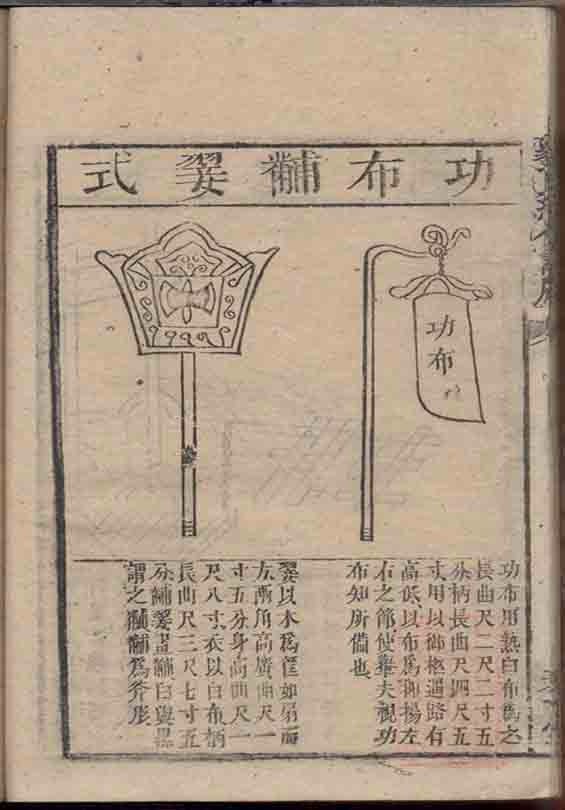 功布黼翣式
功布
功布用熟白布爲之
長曲尺二尺二寸五
分柄長曲尺四尺五
寸用以御柩遇路有
高低以布爲抑揚左
右之節使舉夫視功
布知所備也
翣以木爲筐如扇而
方兩角高廣曲尺一
寸五分身高曲尺一
尺八寸衣以白布柄
長曲尺三尺七寸五
分黼翣畫黼白與黑
謂之黼黼爲斧形